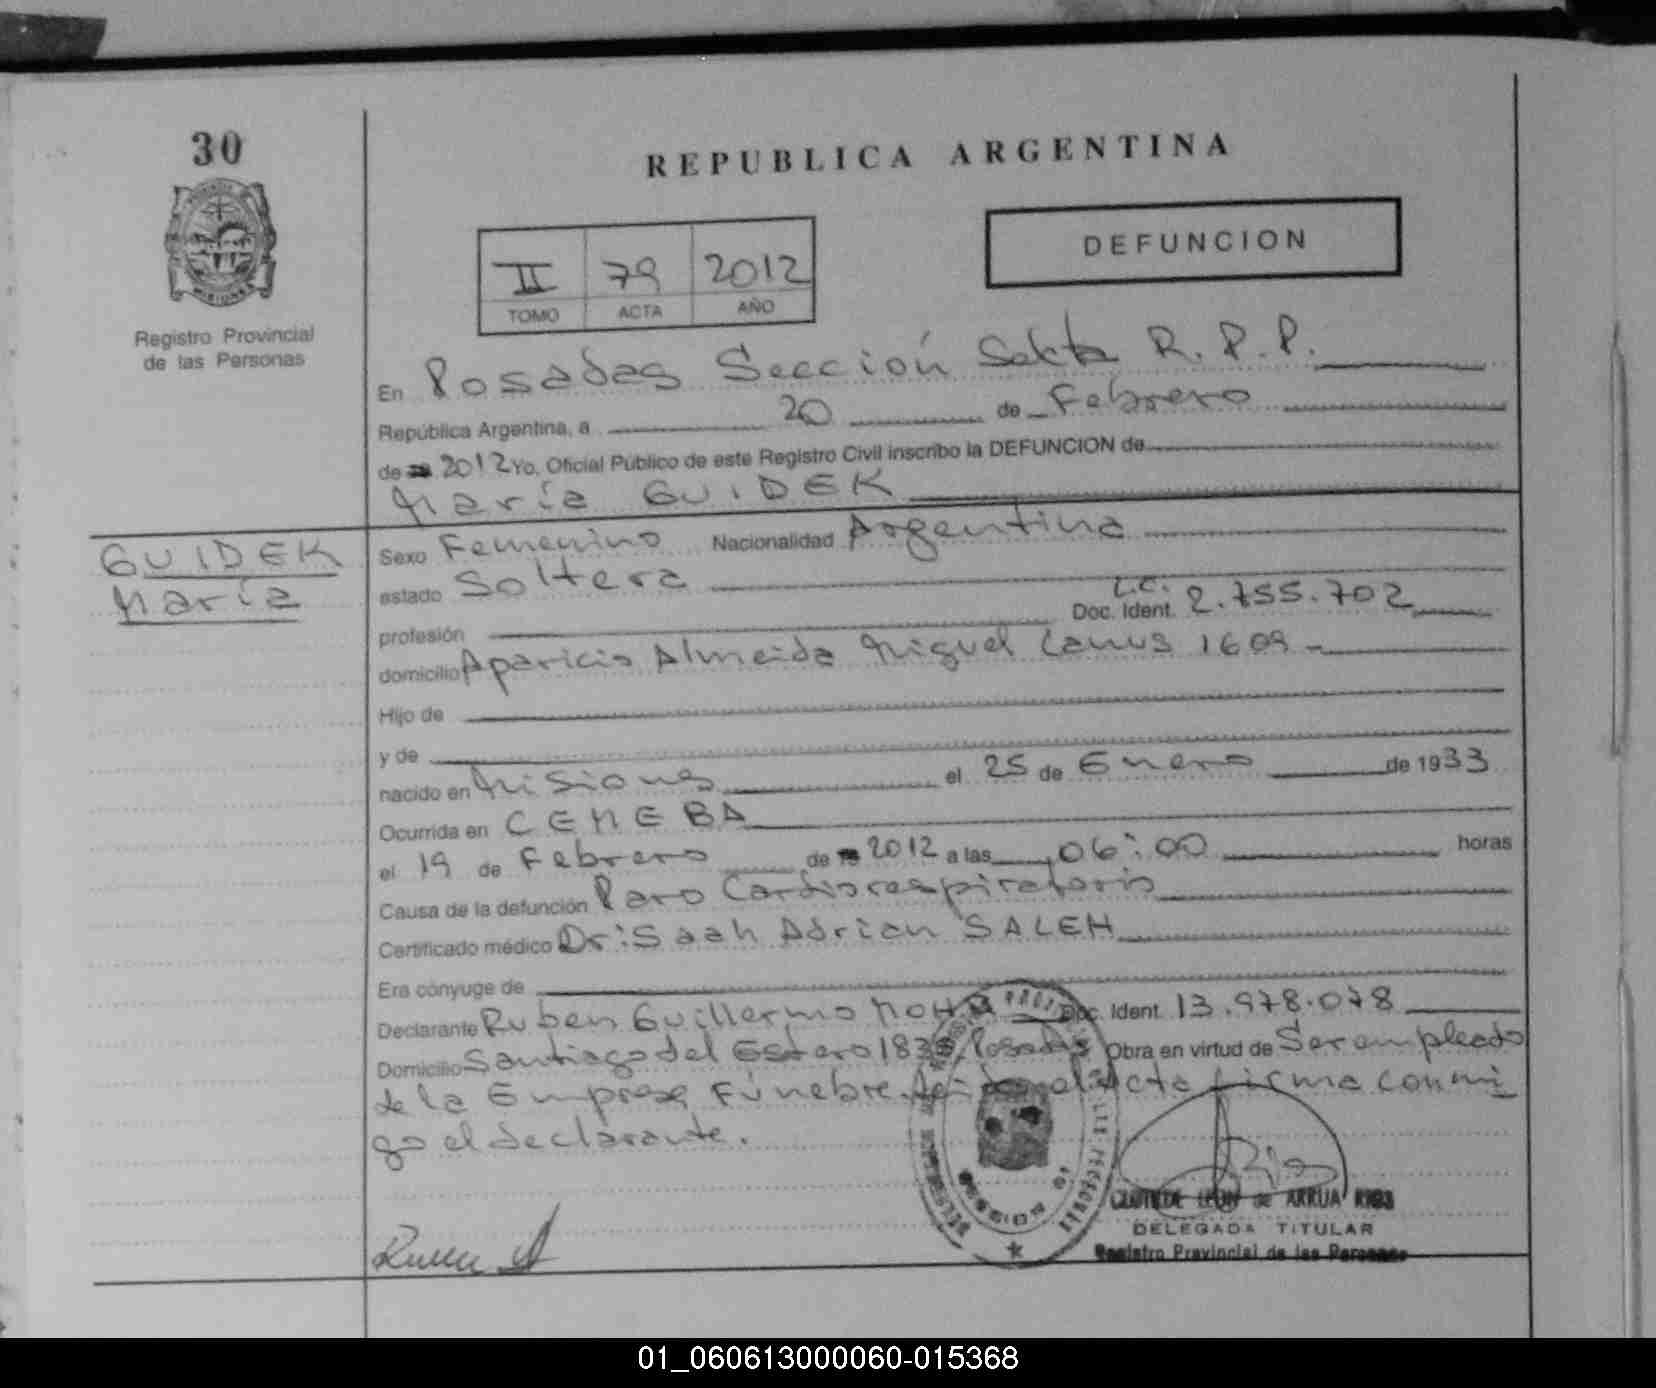 30
REPUBLICA ARGENTINA
MISIONES
Registro Provincial
de las Personas
DEFUNCION
II 79 2012
TOMO ACTA AÑO
En Posadas Sección Sekta R.P.P.
República Argentina, a 20 de Febrero
de 2012 Yo, Oficial Público de este Registro Civil inscribo la DEFUNCION de
María GUIDEK
GUIDEK
María
Sexo Femenino Nacionalidad Argentina
estado Soltera
L.C.
profesión Doc. Ident. 2.755.702
domicilio Aparicio Almeida Miguel Lanus 1609 -
Hijo de
y de
nacido en Misiones el 25 de Enero de 1933
Ocurrida en CEMEBA
el 19 de Febrero de 2012 a las 06:00 horas
Causa de la defunción Paro Cardiorespiratorio
Certificado médico Dr: Saah Adrian SALEH
Era cónyuge de
Declarante Ruben Guillermo Doc. Ident. 13.978.078
Domicilio Santiago del Estero Posadas Obra en virtud de Ser empleado
de la Empresa Fúnebre. el Acta firma conmi
go el declarante.
CLOTILDE LEON de ARRUA RIOS
DELEGADA TITULAR
Registro Provincial de las Personas
01_060613000060-015368